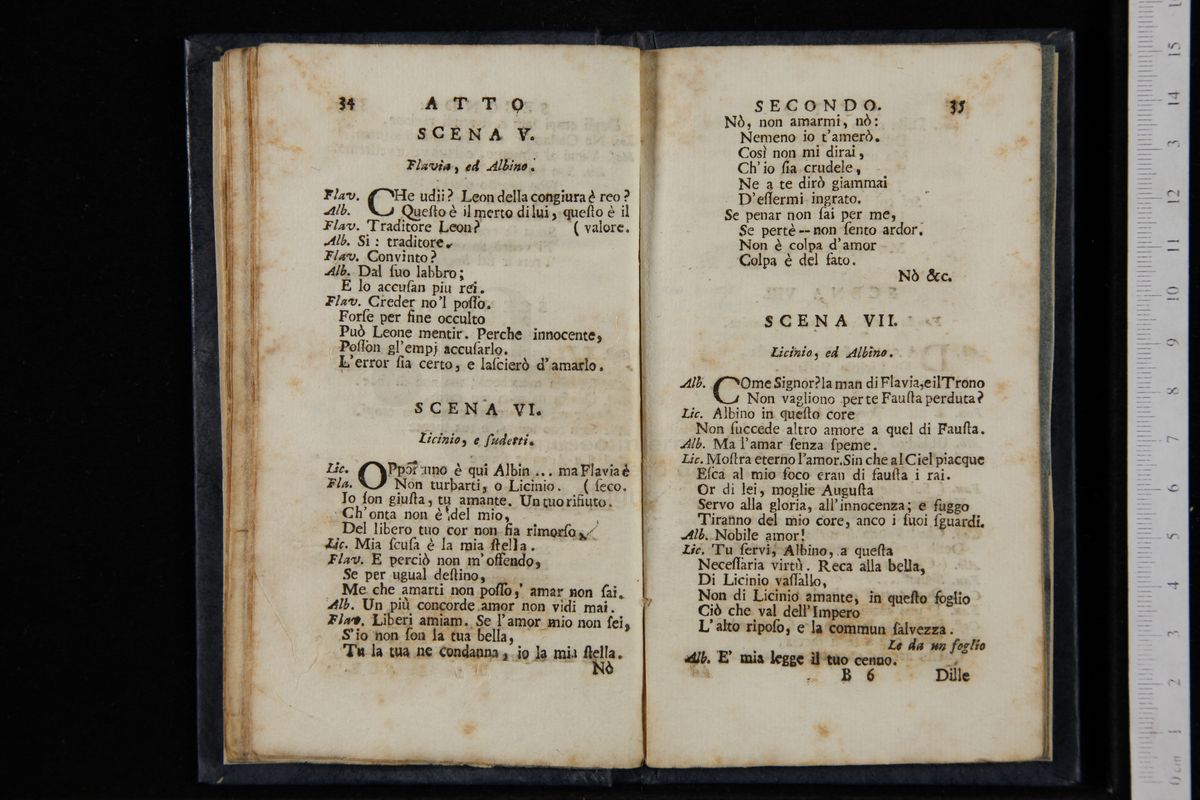 34 ATTO
SCENA V.
Flavia, ed Albino.
Flav. CHe udii? Leon della congiura è reo?
Alb. Questo è il merto di lui, questo è il
Flav. Traditore Leon? ( valore.
Alb. Si : traditore.
Flav. Convinto?
Alb. Dal suo labbro;
E lo accusan piu rei.
Flav. Creder no'l posso.
Forse per fine occulto
Può Leone mentir. Perche innocente,
Posson gl'empj accusarlo.
L'error sia certo, e lascierò d'amarlo.
SCENA VI.
Licinio, e sudetti.
Lic. OPportuno è qui Albin ... ma Flavia è
Fla. Non turbarti, o Licinio. ( seco.
Io son giusta, tu amante. Un tuo rifiuto.
Ch'onta non è del mio,
Del libero tuo cor non sia rimorso.
Lic. Mia scusa è la mia stella.
Flav. E perciò non m'offendo,
Se per ugual destino,
Me che amarti non posso, amar non sai.
Alb. Un più concorde amor non vidi mai.
Flav. Liberi amiam. Se l'amor mio non sei,
S'io non son la tua bella,
Tu la tua ne condanna, io la mia stella.
Nò
SECONDO. 35
Nò, non amarmi, nò:
Nemeno io t'amerò.
Così non mi dirai,
Ch'io sia crudele,
Ne a te dirò giammai
D'essermi ingrato.
Se penar non sai per me,
Se pertè -- non sento ardor.
Non è colpa d'amor
Colpa è del fato.
Nò &c.
SCENA VII.
Licinio, ed Albino.
Alb. COme Signor? la man di Flavia, e il Trono
Non vagliono per te Fausta perduta?
Lic. Albino in questo core
Non succede altro amore a quel di Fausta.
Alb. Ma l'amar senza speme.
Lic. Mostra eterno l'amor. Sin che al Ciel piacque
Esca al mio foco eran di fausta i rai.
Or di lei, moglie Augusta
Servo alla gloria, all'innocenza; e fuggo
Tiranno del mio core, anco i suoi sguardi.
Alb. Nobile amor!
Lic. Tu servi, Albino, a questa
Necessaria virtù. Reca alla bella,
Di Licinio vassallo,
Non di Licinio amante, in questo foglio
Ciò che val dell'Impero
L'alto riposo, e la commun salvezza.
Le da un foglio
Alb. E' mia legge il tuo cenno.
B 6 Dille